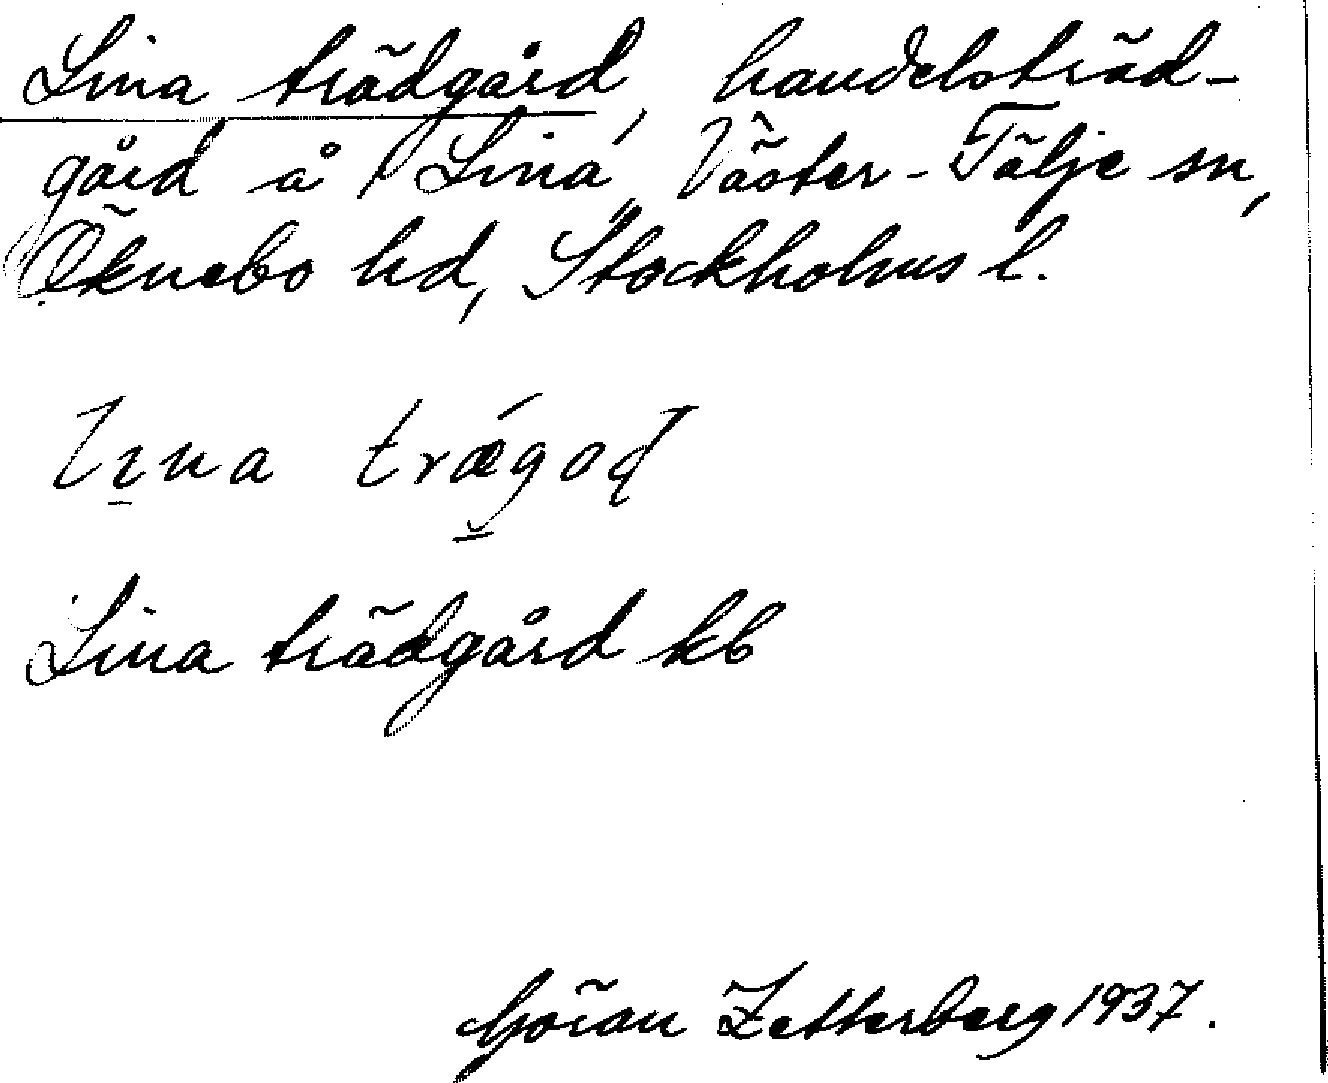 Lina trädgård, handelsträd-
gård å Lina, Väster-Tälje sn,
Öknebo hd, Stockholms l.
Lina trägoḍ
Lina trädgård kb
Göran Zetterberg 1937.